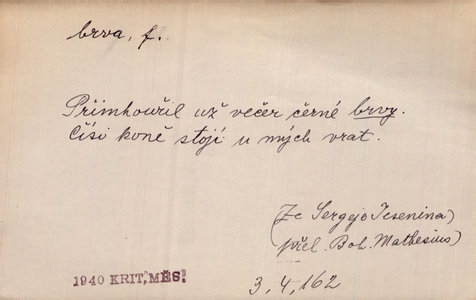 brva, f.
Přimhouřil už večer černé brvy.
Čísi koně stojí u mých vrat.
(Ze Sergeje Jesenina)
(přel. Boh. Mathesius)
1940 KRIT. MĚS.
3, 4, 162